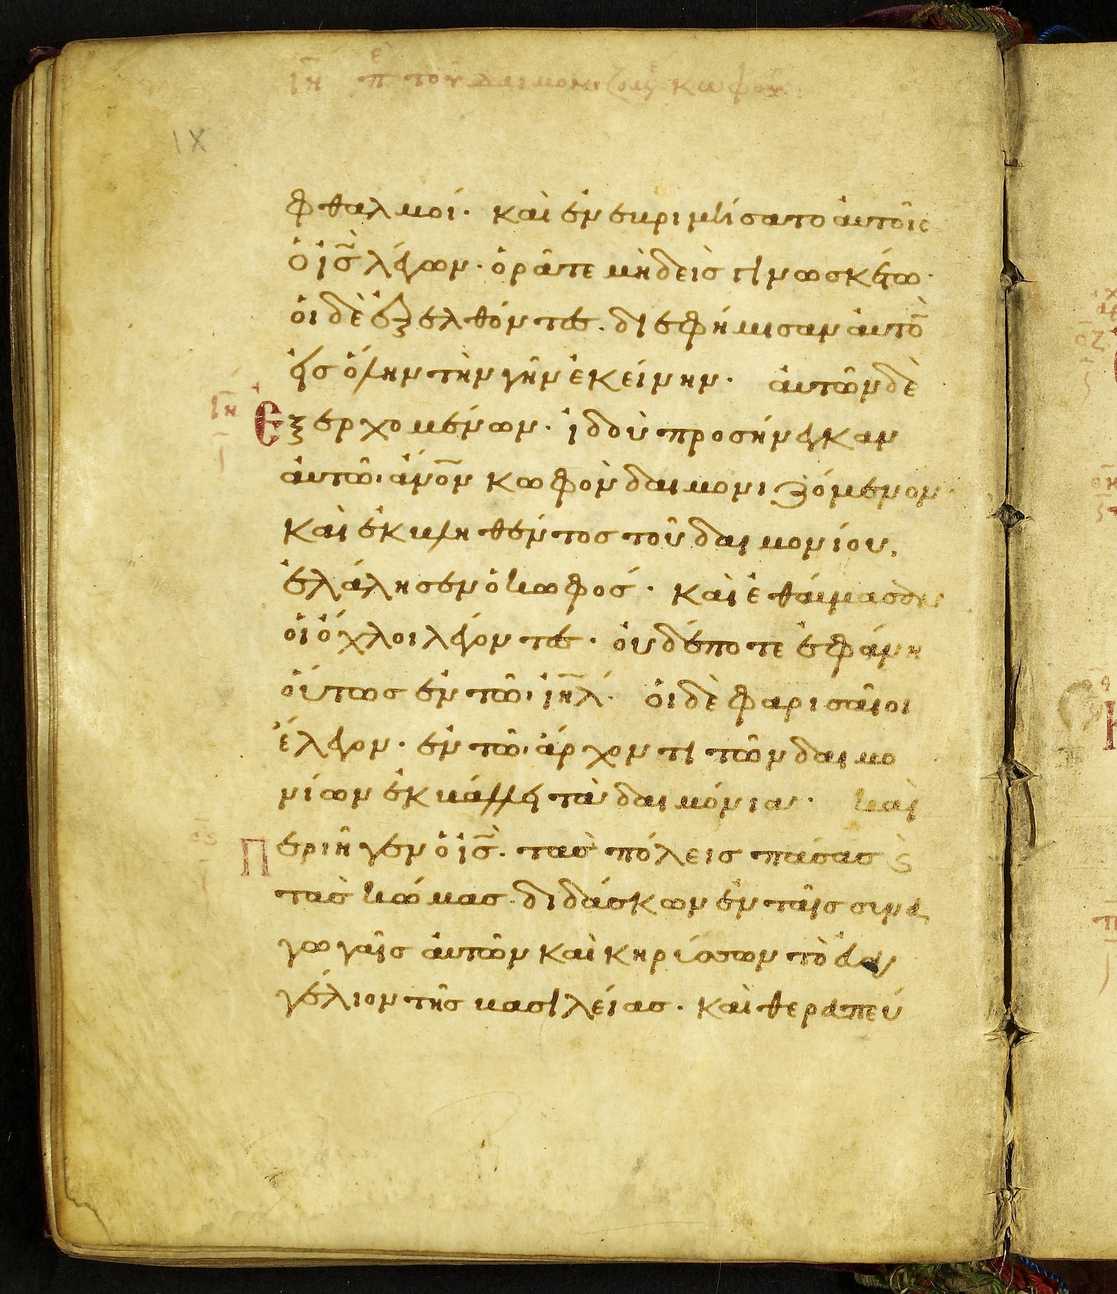 ΙΗ π̅ε τοῦ δαιμονιζομ κωφοῦ
ΙΧ
φθαλμοί· καὶ ἐνεκριμήσατο ἀυτοῖς
ὁ ις̅ λέγων· ὁρᾶτε μηδεὶσ γινωσκέτω·
ὁι δὲ ἐξελθόντες· διεφήμισαν ἀυτὸ̅
ἐισ ὅλην τὴν γῆν ἐκείνην· ἀυτῶν δὲ
ΙΗ
Ἐξερχομένων· ἰδοὺ προσήνεγκαν
ἀυτῶ· ἀν̅ον κωφὸν δαιμονιζόμενον·
καὶ ἐκβληθέντοσ τοῦ δαιμονίου,
ἐλάλησεν ὁ κωφοσ· καὶ ἐθάυμασαν
ὁι ὄχλοι λέγοντες· ὀυδέποτε ἐφάνη
ὅυτωσ ἐν τῶ ιη̅λ· ὁι δὲ φαρισαῖοι
ἔλεγον· ἐν τῶ ἄρχοντι τῶν δαιμο
νίων ἐκβάλλει τὰ δαιμόνια· καὶ
Περιῆγεν ὁ ις̅· τασ πόλεισ πάσασ ϗ
τασ κώμασ· διδάσκων ἐν ταῖσ συνα
γωγαῖσ ἀυτῶν καὶ κηρύσσων τὸ ἐυαγ
γέλιον τῆσ βασιλείασ· καὶ θεραπεύ